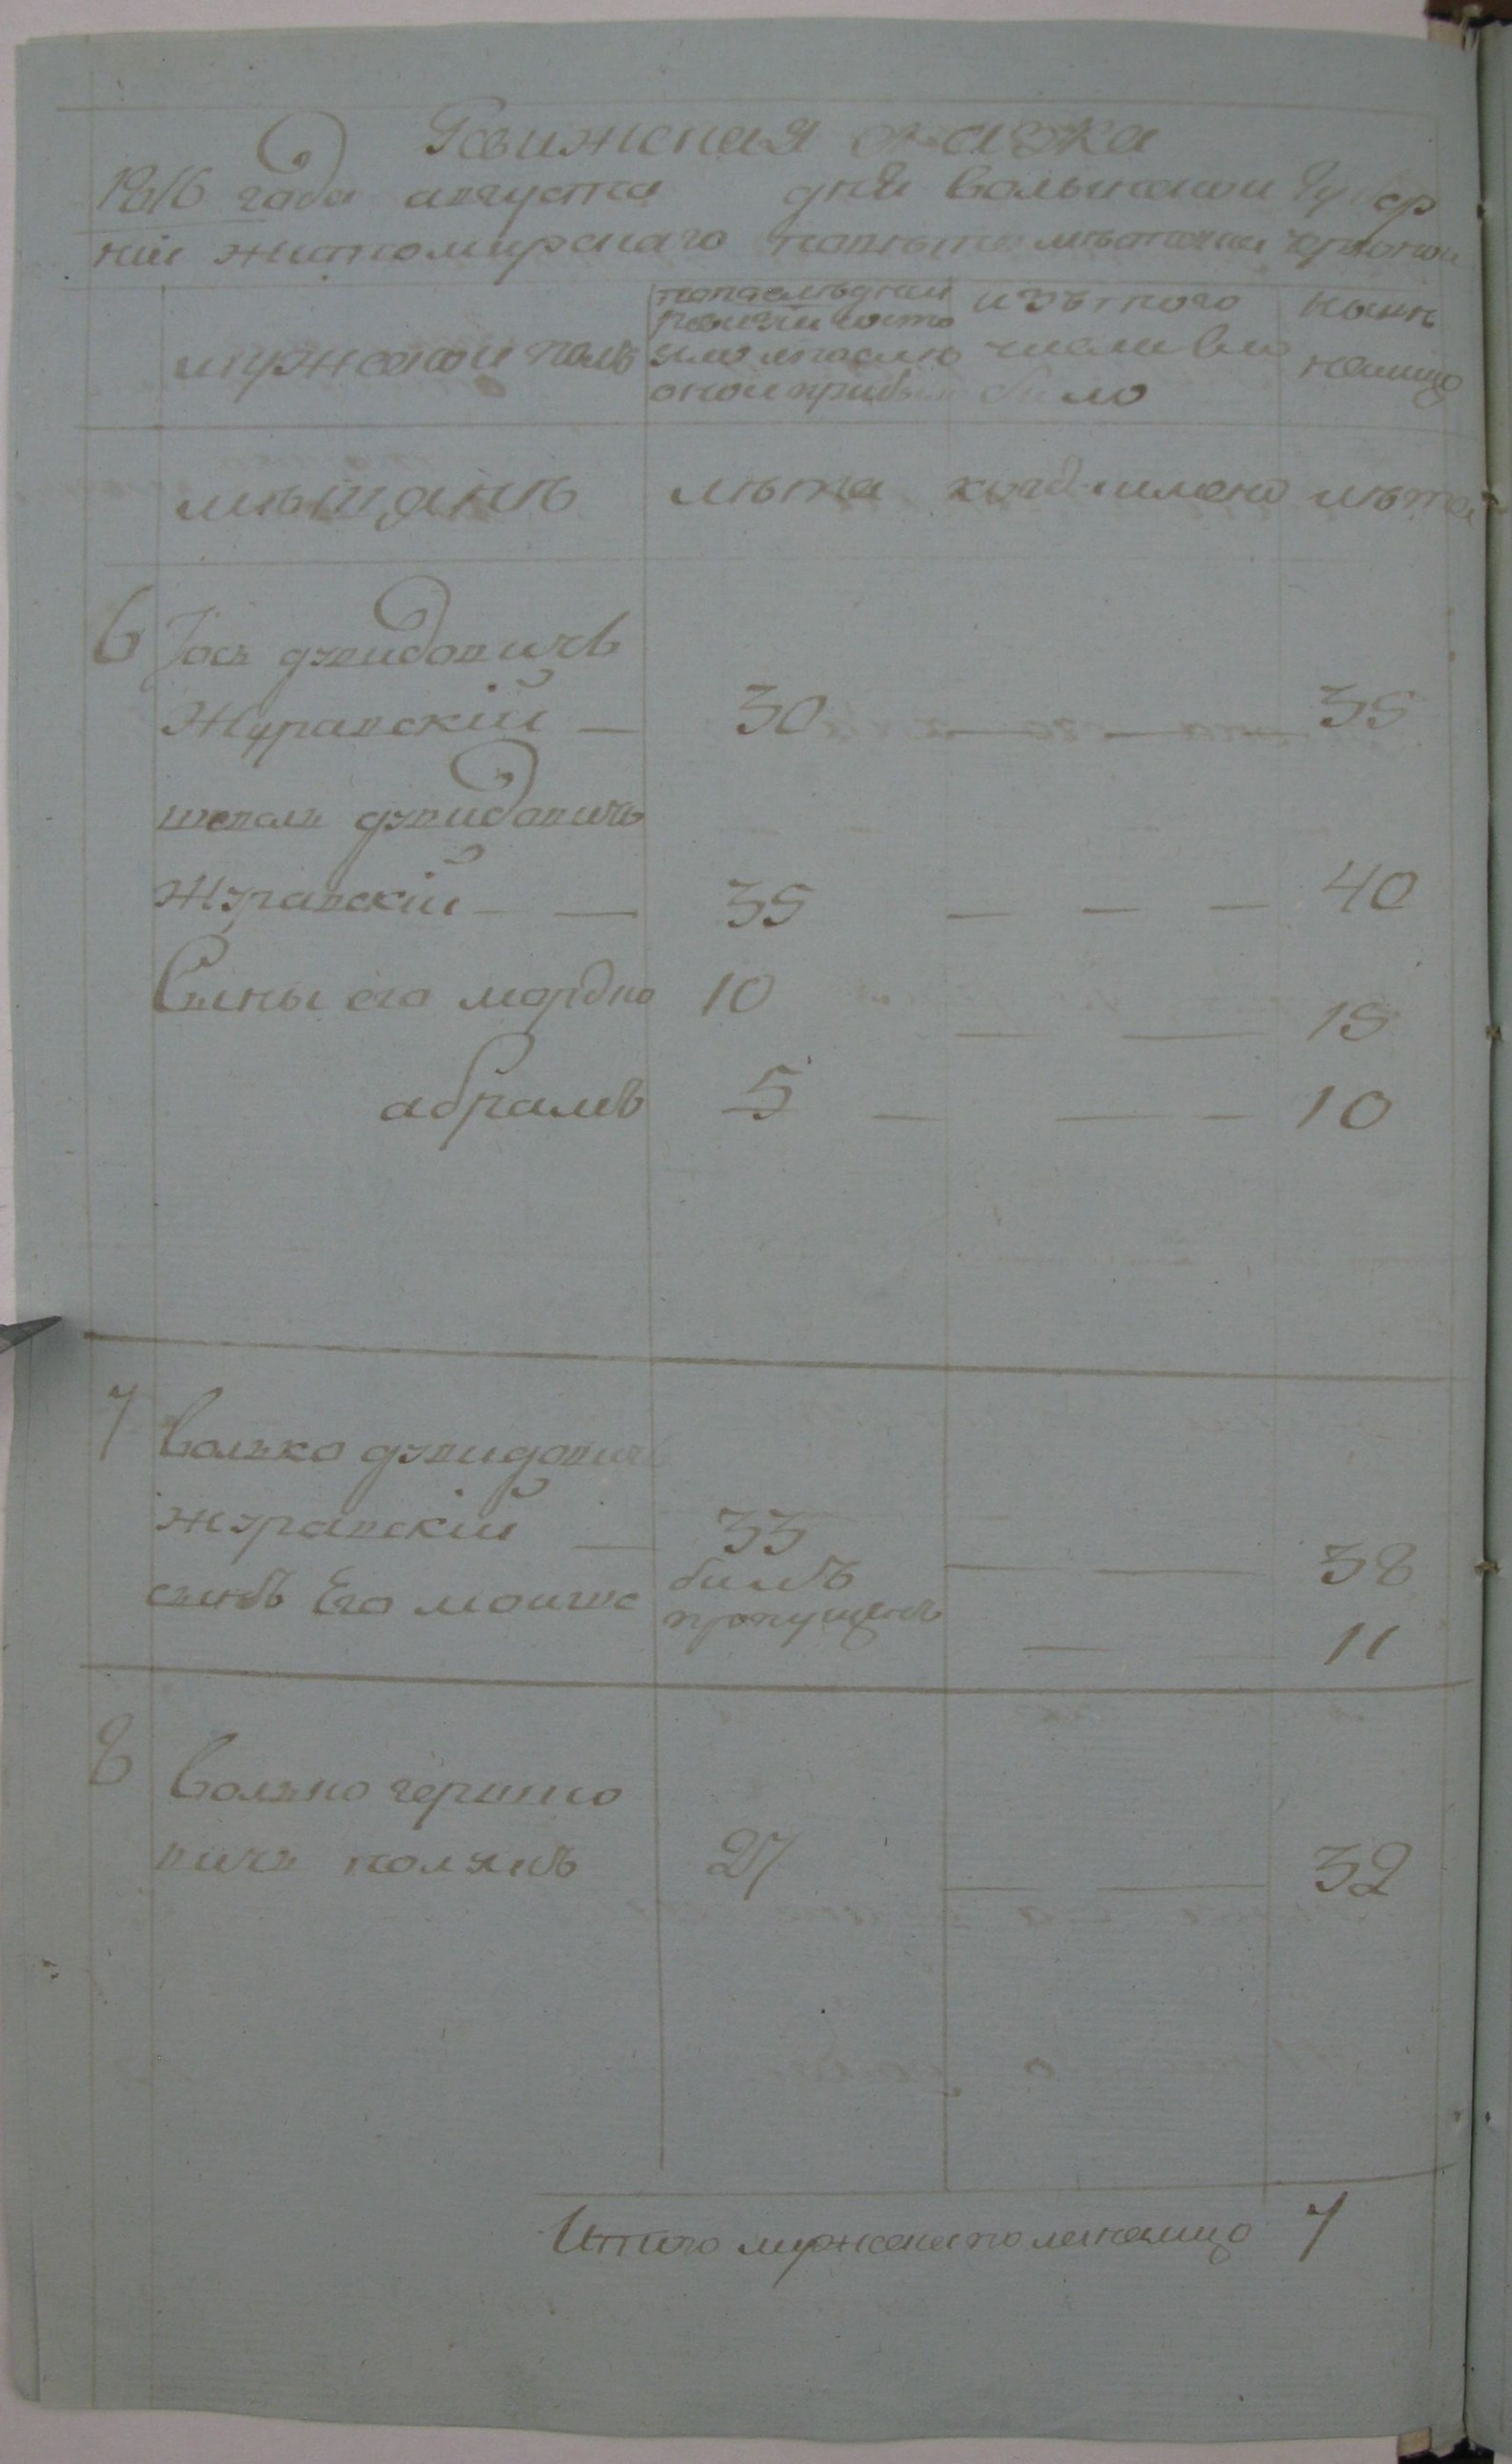 Ревижская сказка
1816 года августа дня волынской губер
нии житомирского повыта мѣстечка
мужской полъ
попослѣдней ревизии состо
яло и после
оной прибыло
изътого
числа вы
было
нынѣ
налицо
мѣщянъ лѣта когда имено лѣта
6 Іось дувидовичъ
Журавский — 30 — — — 35
дувидовичъ
Журавский — — 35 — — — 40
Сыны его мордко 10 — — 15
абрамъ 5 — — — 10
7 Волько дувидовичъ
журавский — 33 — — 38
сынъ Его мошко билъ пропущенъ — — 11
8 Волько гершко
вичъ полякъ 27 — — 32
Итого мужеска пола налицо 7